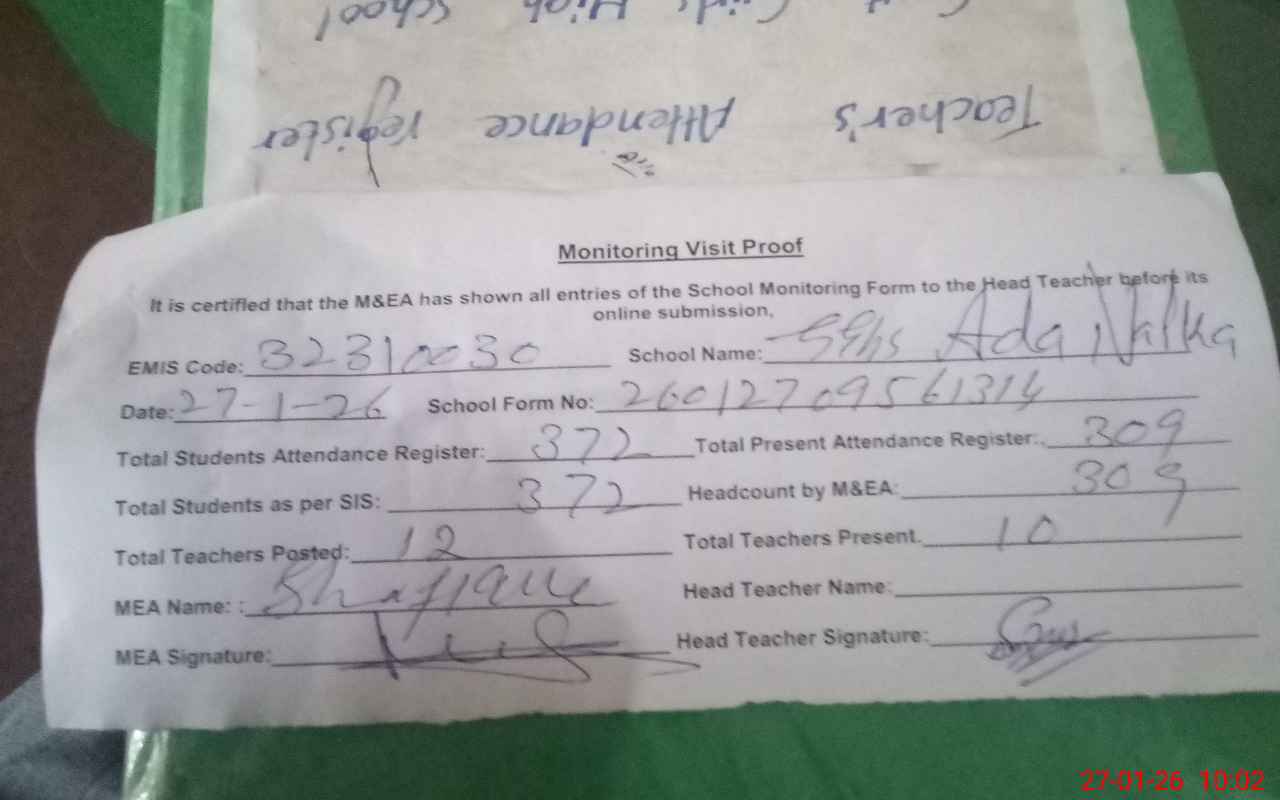 Govt Girls High School
Teacher's Attendance register
Monitoring Visit Proof
It is certified that the M&EA has shown all entries of the School Monitoring Form to the Head Teacher before its
online submission,
EMIS Code: 32310030 School Name: GGHS Ada Nalka
Date: 27-1-26 School Form No: 26012709561314
Total Students Attendance Register: 372 Total Present Attendance Register: 309
Total Students as per SIS: 372 Headcount by M&EA: 309
Total Teachers Posted: 12 Total Teachers Present. 10
MEA Name: : Shafique Head Teacher Name:
MEA Signature: Head Teacher Signature:
27-01-26 10:02